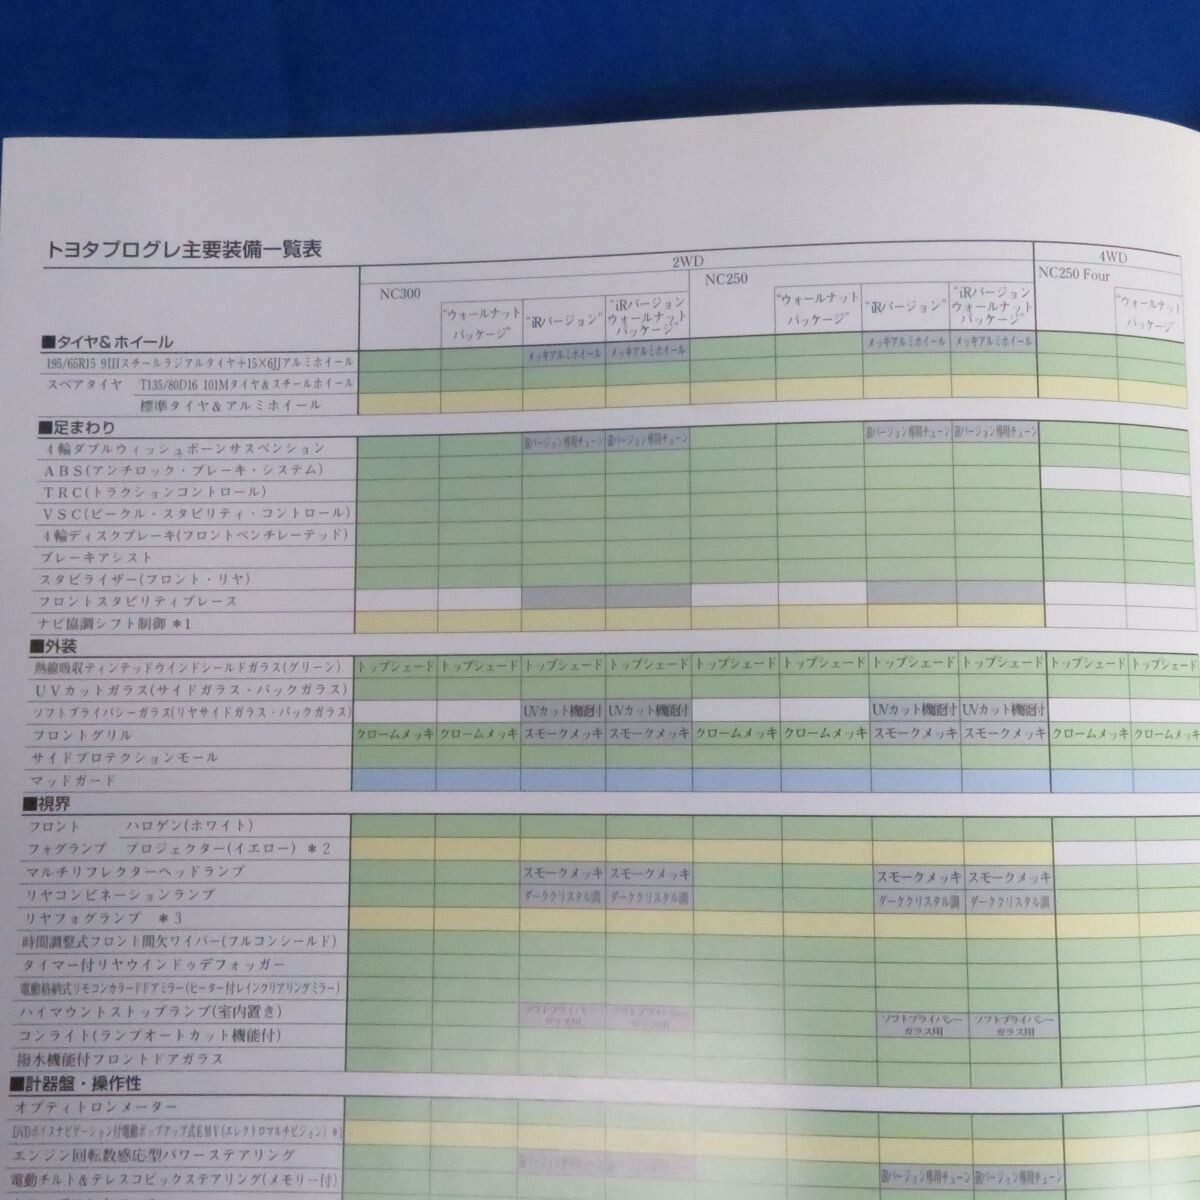 トヨタプログレ主要装備一覧表
2WD
4WD
NC300
NC250
NC250 Four
“ウォールナット
パッケージ”
“iRバージョン”
“iRバージョン
ウォールナット
パッケージ”
“ウォールナット
パッケージ”
“iRバージョン”
“iRバージョン
ウォールナット
パッケージ”
“ウォールナット
パッケージ”
■タイヤ&ホイール
195/65R15 91Hスチールラジアルタイヤ+15×6JJアルミホイール メッキアルミホイール メッキアルミホイール メッキアルミホイール メッキアルミホイール
スペアタイヤ T135/80D16 101Mタイヤ&スチールホイール
標準タイヤ&アルミホイール
■足まわり
4輪ダブルウィッシュボーンサスペンション iRバージョン専用チューン iRバージョン専用チューン iRバージョン専用チューン iRバージョン専用チューン
ABS(アンチロック・ブレーキ・システム)
TRC(トラクションコントロール)
VSC(ビークル・スタビリティ・コントロール)
4輪ディスクブレーキ(フロントベンチレーテッド)
ブレーキアシスト
スタビライザー(フロント・リヤ)
フロントスタビリティブレース
ナビ協調シフト制御 *1
■外装
熱線吸収ティンテッドウインドシールドガラス(グリーン) トップシェード トップシェード トップシェード トップシェード トップシェード トップシェード トップシェード トップシェード トップシェード トップシェード
UVカットガラス(サイドガラス・バックガラス)
ソフトプライバシーガラス(リヤサイドガラス・バックガラス) UVカット機能付 UVカット機能付 UVカット機能付 UVカット機能付
フロントグリル クロームメッキ クロームメッキ スモークメッキ スモークメッキ クロームメッキ クロームメッキ スモークメッキ スモークメッキ クロームメッキ クロームメッキ
サイドプロテクションモール
マッドガード
■視界
フロント ハロゲン(ホワイト)
フォグランプ プロジェクター(イエロー) *2
マルチリフレクターヘッドランプ スモークメッキ スモークメッキ スモークメッキ スモークメッキ
リヤコンビネーションランプ ダーククリスタル調 ダーククリスタル調 ダーククリスタル調 ダーククリスタル調
リヤフォグランプ *3
時間調整式フロント間欠ワイパー(フルコンシールド)
タイマー付リヤウインドゥデフォッガー
電動格納式リモコンカラードドアミラー(ヒーター付レインクリアリングミラー)
ハイマウントストップランプ(室内置き) ソフトプライバシーガラス用 ソフトプライバシーガラス用 ソフトプライバシーガラス用 ソフトプライバシーガラス用
コンライト(ランプオートカット機能付)
撥水機能付フロントドアガラス
■計器盤・操作性
オプティトロンメーター
DVDボイスナビゲーション付電動ポップアップ式EMV(エレクトロマルチビジョン) *1
エンジン回転数感応型パワーステアリング iRバージョン専用チューン iRバージョン専用チューン iRバージョン専用チューン iRバージョン専用チューン
電動チルト&テレスコピックステアリング(メモリー付)